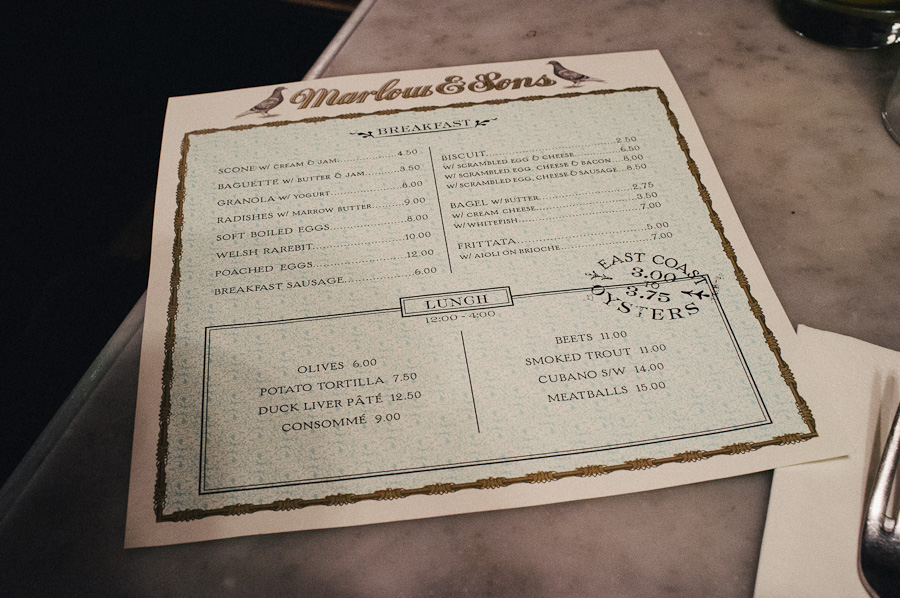 Marlow & Sons
BREAKFAST
SCONE W/ CREAM & JAM 4.50
BAGUETTE W/ BUTTER & JAM 3.50
GRANOLA W/ YOGURT 8.00
RADISHES W/ MARROW BUTTER 9.00
SOFT BOILED EGGS 8.00
WELSH RAREBIT 10.00
POACHED EGGS 12.00
BREAKFAST SAUSAGE 6.00
BISCUIT 2.50
W/ SCRAMBLED EGG & CHEESE 6.50
W/ SCRAMBLED EGG, CHEESE & BACON 8.00
W/ SCRAMBLED EGG, CHEESE & SAUSAGE 8.50
BAGEL W/ BUTTER 2.75
W/ CREAM CHEESE 3.50
W/ WHITEFISH 7.00
FRITTATA 5.00
W/ AIOLI ON BRIOCHE 7.00
EAST COAST
3.00
TO
3.75
OYSTERS
LUNCH
12:00 - 4:00
OLIVES 6.00
POTATO TORTILLA 7.50
DUCK LIVER PÂTÉ 12.50
CONSOMMÉ 9.00
BEETS 11.00
SMOKED TROUT 11.00
CUBANO S/W 14.00
MEATBALLS 15.00